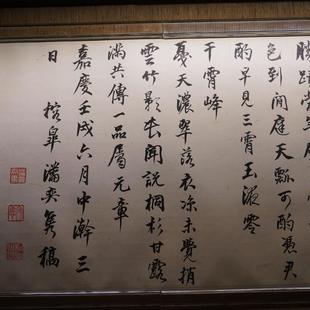 勝
色到閒庭天瓢可酌憑君
酌早見三霄玉液零
干霄峰
戛天濃翠落衣涼未覺捎
雲竹影長聞說桐杉甘露
滿共傳一品屬元章
嘉慶壬戌六月中澣三
日 榕皋潘奕雋稿